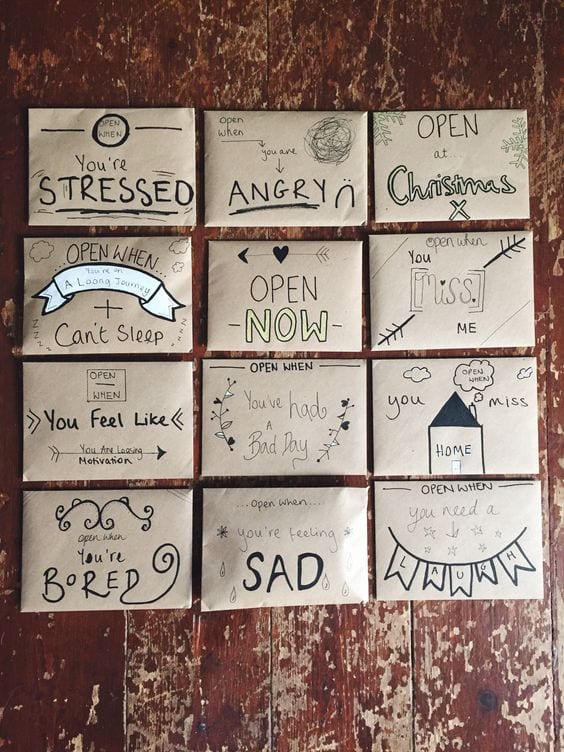 OPEN
WHEN
You're
STRESSED
Open
when
you are
ANGRY
OPEN
at...
Christmas
X
OPEN WHEN...
You're on
A Loong Journey
+
Can't Sleep
OPEN
-NOW-
Open when
You
Miss
ME
OPEN
WHEN
You Feel Like
You Are Loosing
Motivation
OPEN WHEN
You've had
A
Bad Day
OPEN
WHEN
you miss
HOME
open when
You're
BORED
...open when...
you're feeling
SAD
OPEN WHEN
you need a
LAUGH